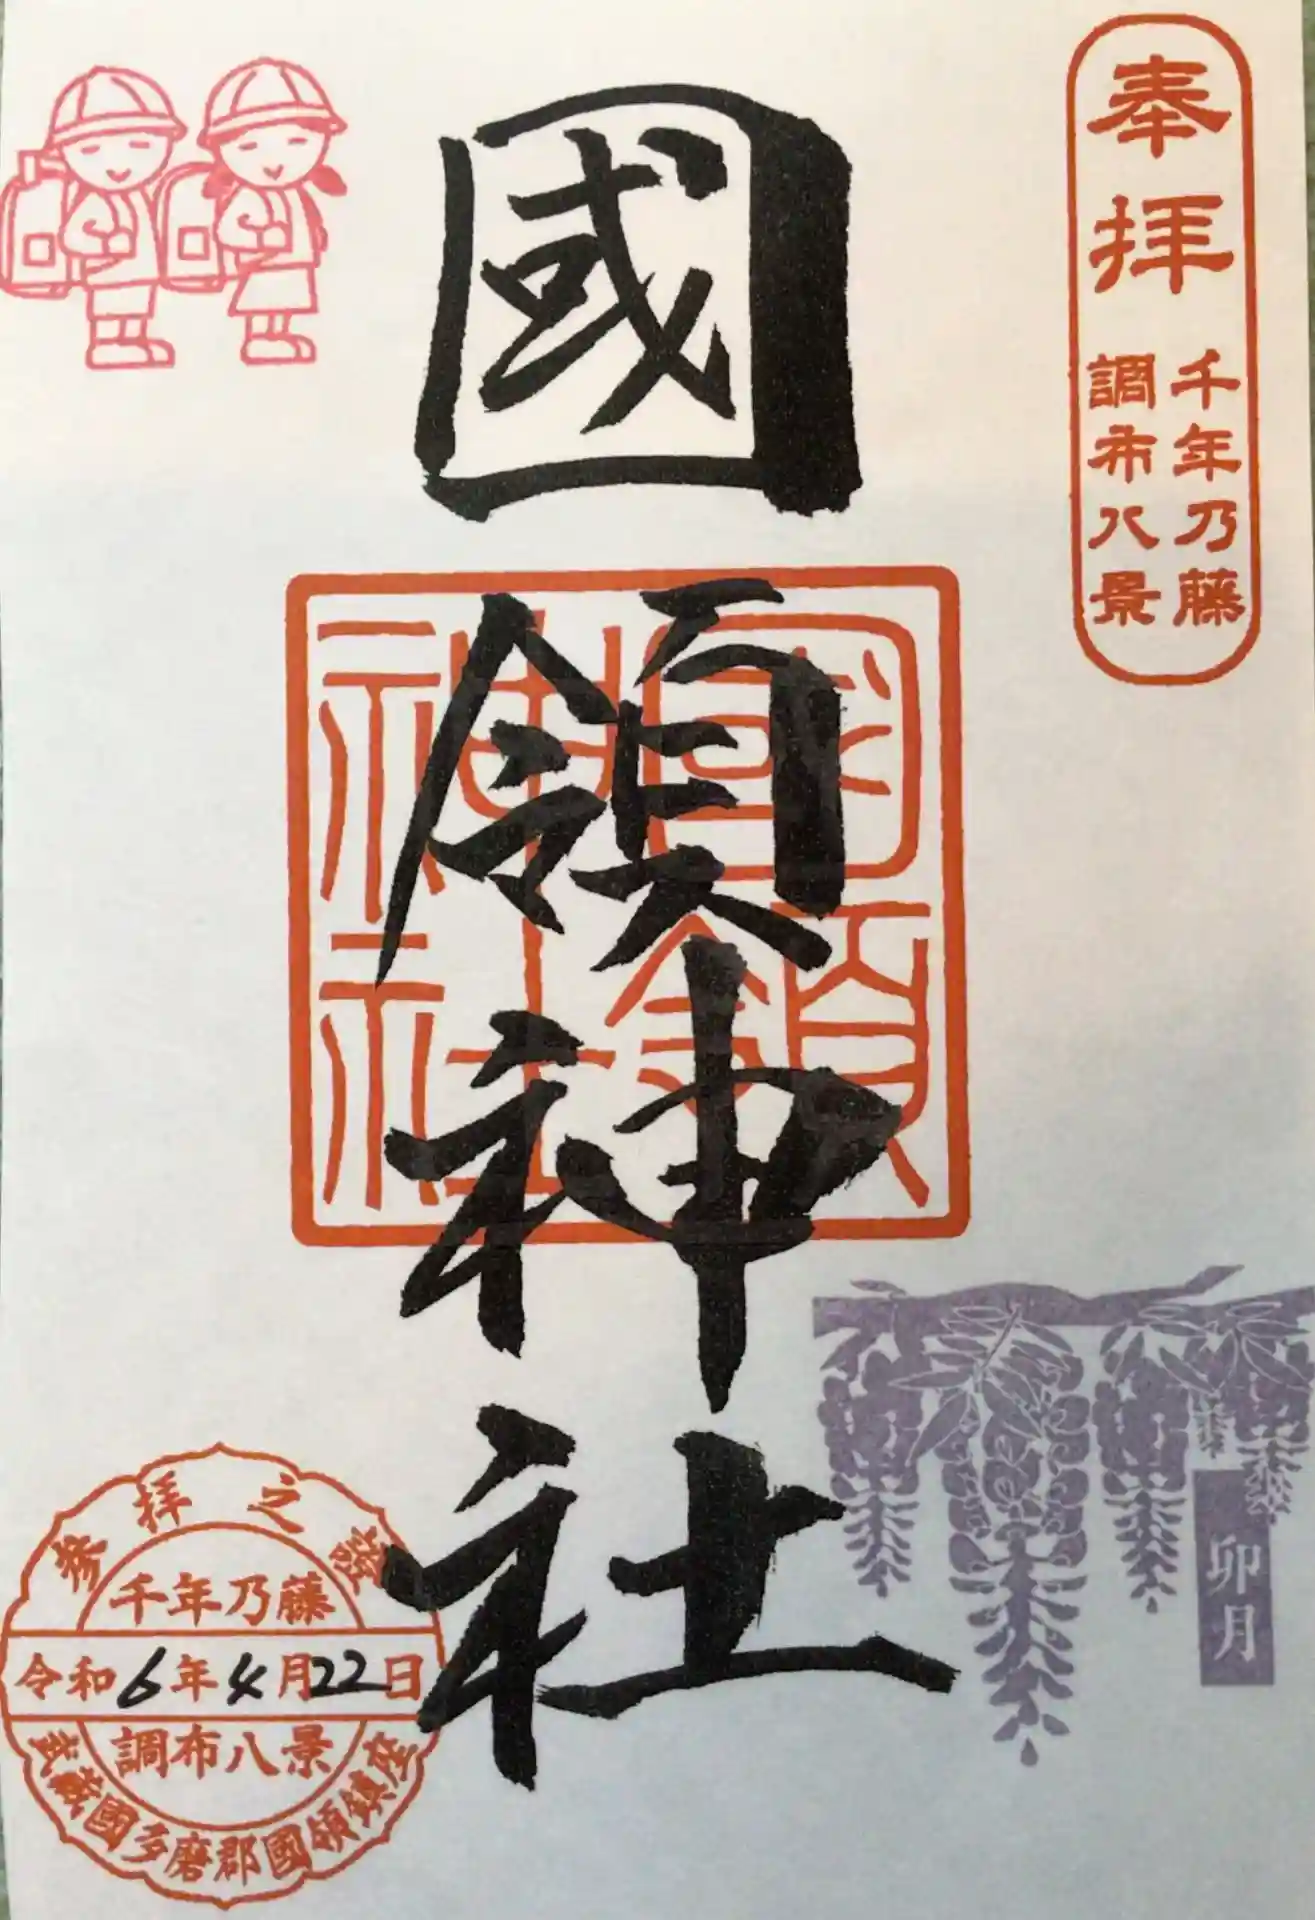 奉拝
千年乃藤
調布八景
國領神社
國領
神社
卯月
参拝之證
千年乃藤
令和6年4月22日
調布八景
武蔵國多磨郡國領鎮座